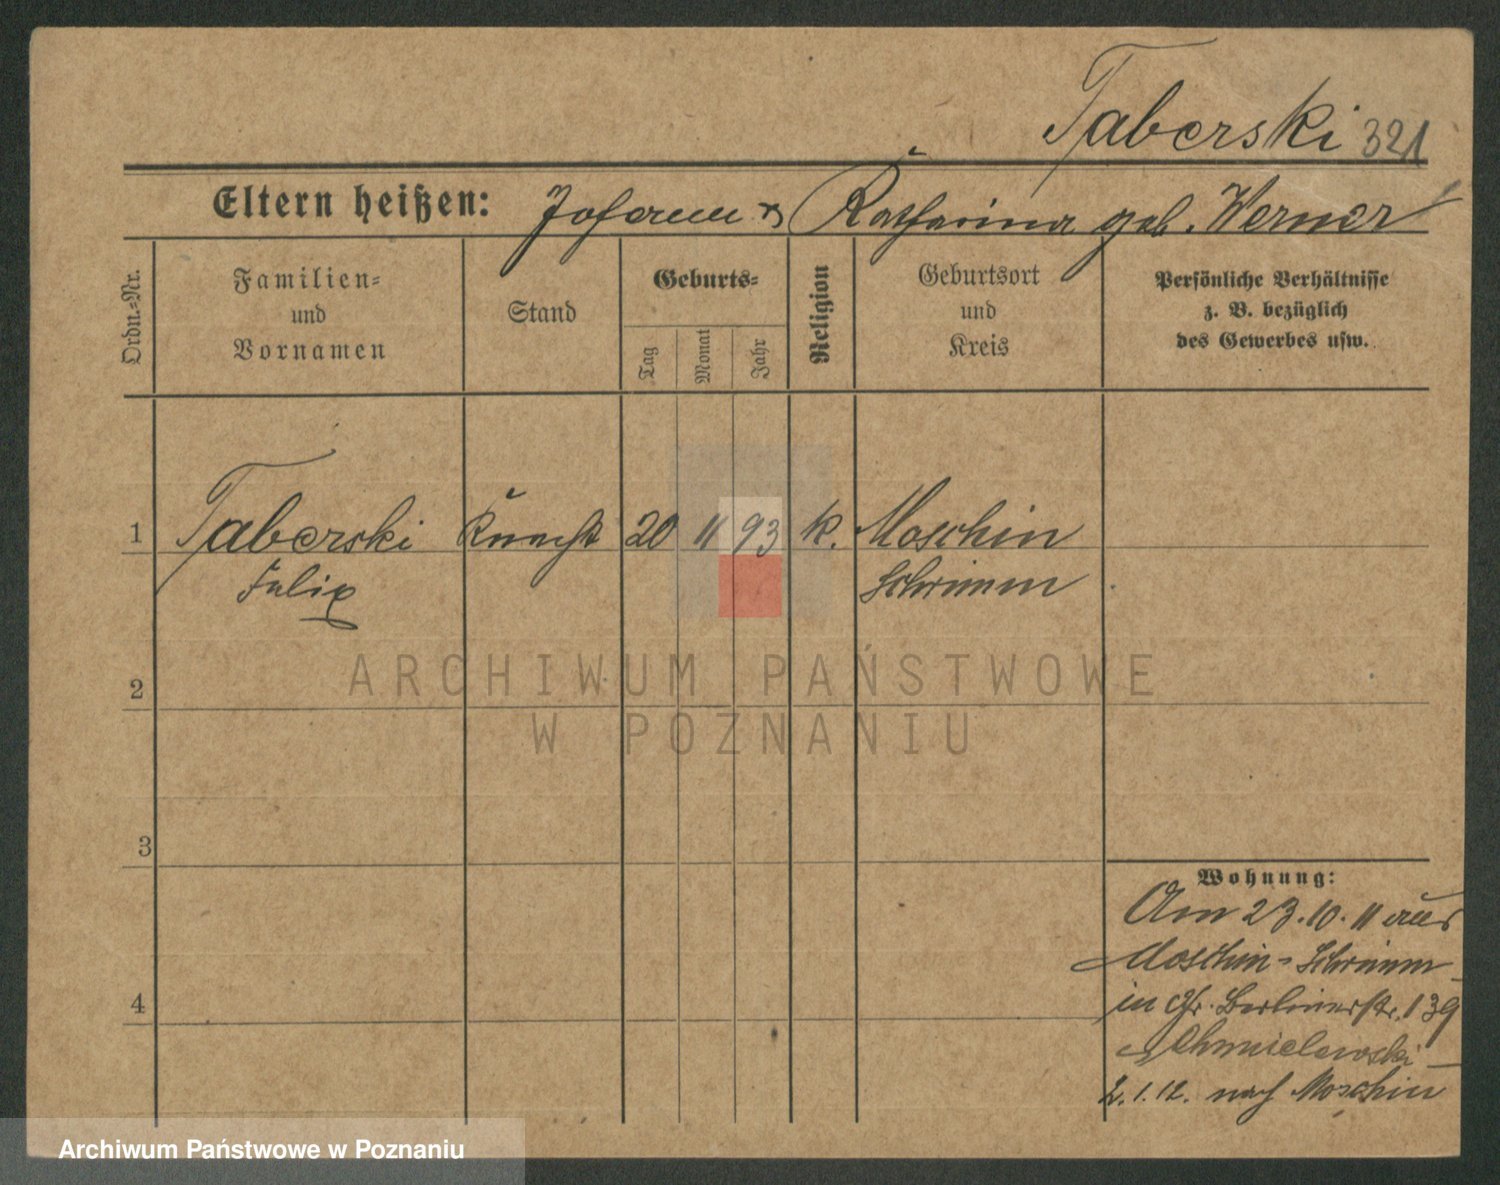 Taberski 321
Eltern heißen: Johann & Katharina geb. Werner
Ordn.=Nr.
Familien=
und
Vornamen
Stand
Geburts=
Tag
Monat
Jahr
Religion
Geburtsort
und
Kreis
Persönliche Verhältnisse
z. B. bezüglich
des Gewerbes usw.
1 Taberski Knecht 20 11 93 k. Moschin
Felix Schrimm
2
ARCHIWUM PAŃSTWOWE
W POZNANIU
3
Wohnung:
Am 23.10.11 aus
Moschin-Schrimm
4
in Gr. Berlinerstr. 139
Chmielewski
2.1.12. nach Moschin
Archiwum Państwowe w Poznaniu